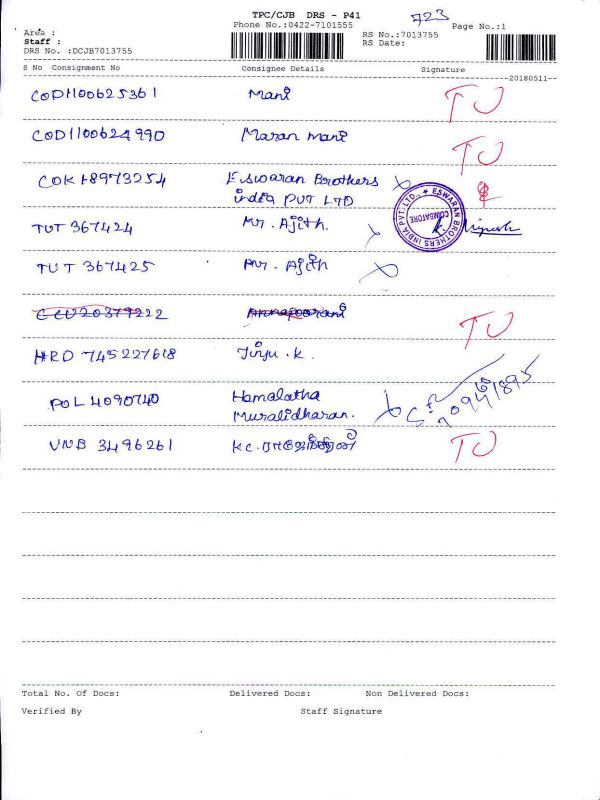 TPC/CJB DRS - P41
723
Phone No.:0422-7101555
Page No.:1
Area :
Staff :
RS No.:7013755
RS Date:
DRS No. :DCJB7013755
S No Consignment No Consignee Details Signature
20180511
COD1100625361 Mani TU
COD1100624990 Maran mani TU
COK 18973254 Eswaran Brothers
india PVT LTD
ESWARAN BROTHERS INDIA PVT. LTD. ★
COIMBATORE
TUT 367424 Mr. Ajith.
TUT 367425 Mr. Ajith
CCU20379222 Annapoorani TU
HRD 745227618 Jinju .K.
POL 4090740 Hamalatha
Muralidharan.
VNB 3496261 TU
Total No. Of Docs: Delivered Docs: Non Delivered Docs:
Verified By Staff Signature